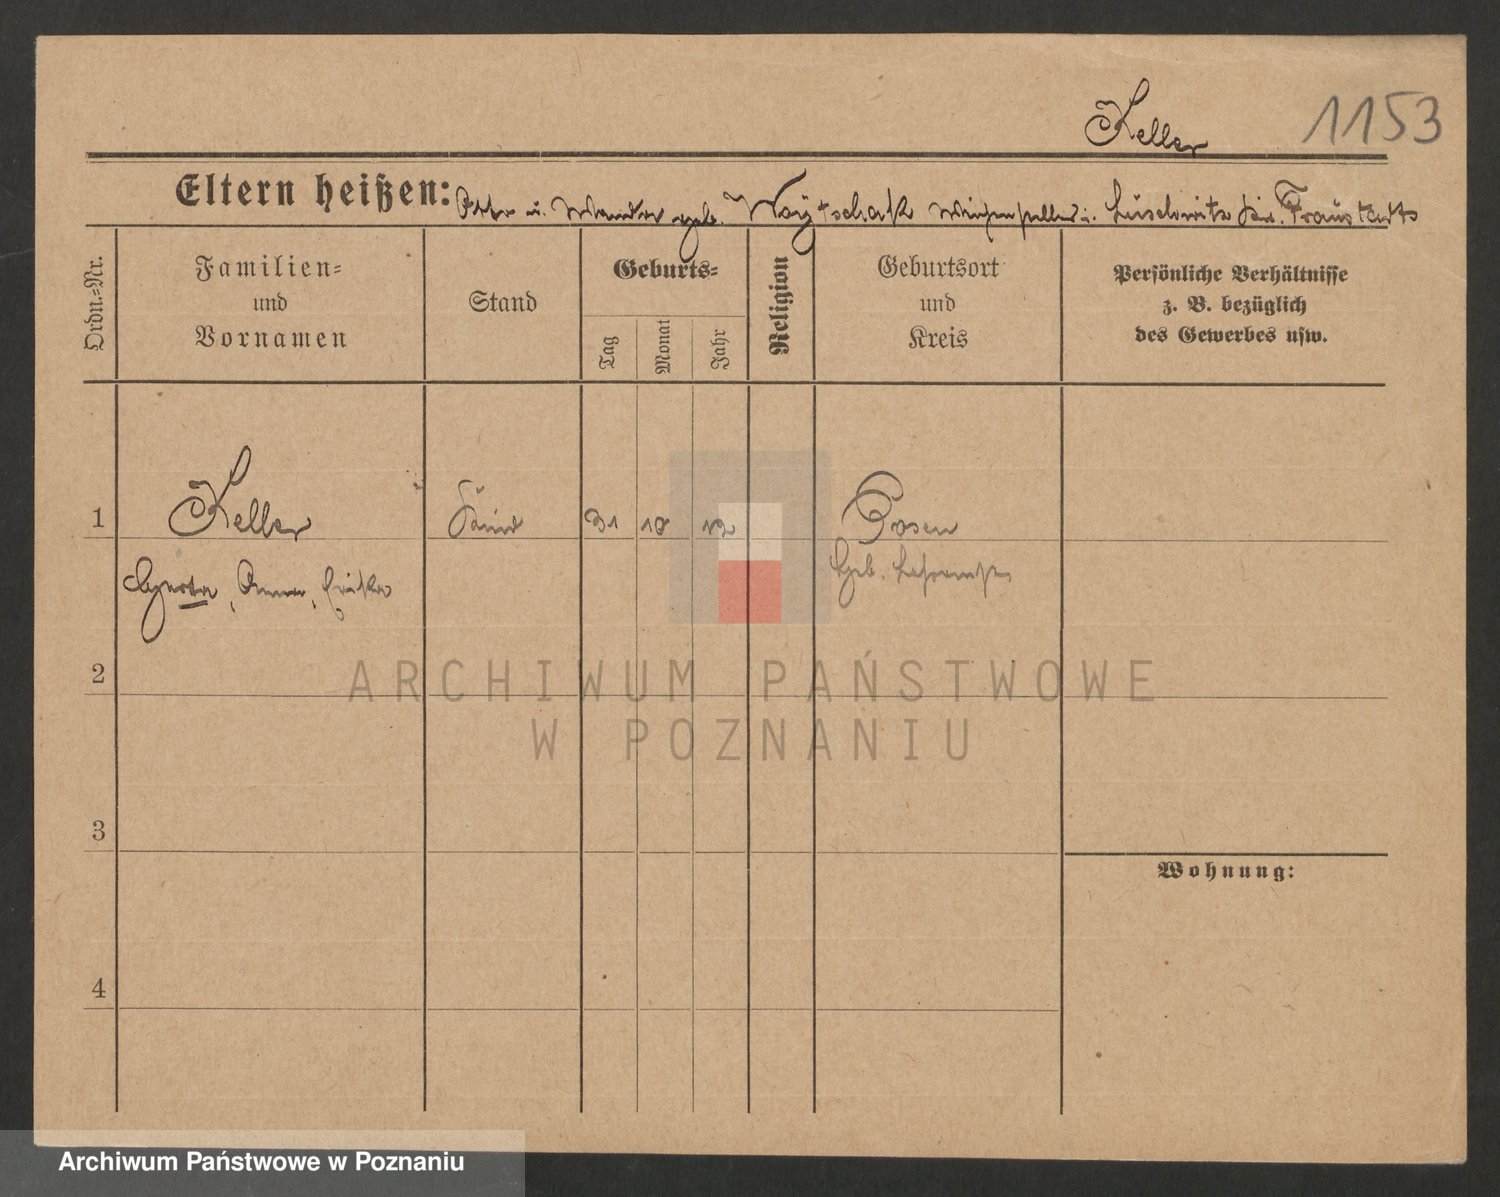 Keller 1153
Eltern heißen: u. geb. Woytschack Kr. Fraustadt
Ordn.=Nr.
Familien=
und
Vornamen
Stand
Geburts=
Tag
Monat
Jahr
Religion
Geburtsort
und
Kreis
Persönliche Verhältnisse
z. B. bezüglich
des Gewerbes usw.
1 Keller Kind 31 10 12 Posen
Gerta, Anna, Erika Geb.
2
ARCHIWUM PAŃSTWOWE
W POZNANIU
3
Wohnung:
4
Archiwum Państwowe w Poznaniu